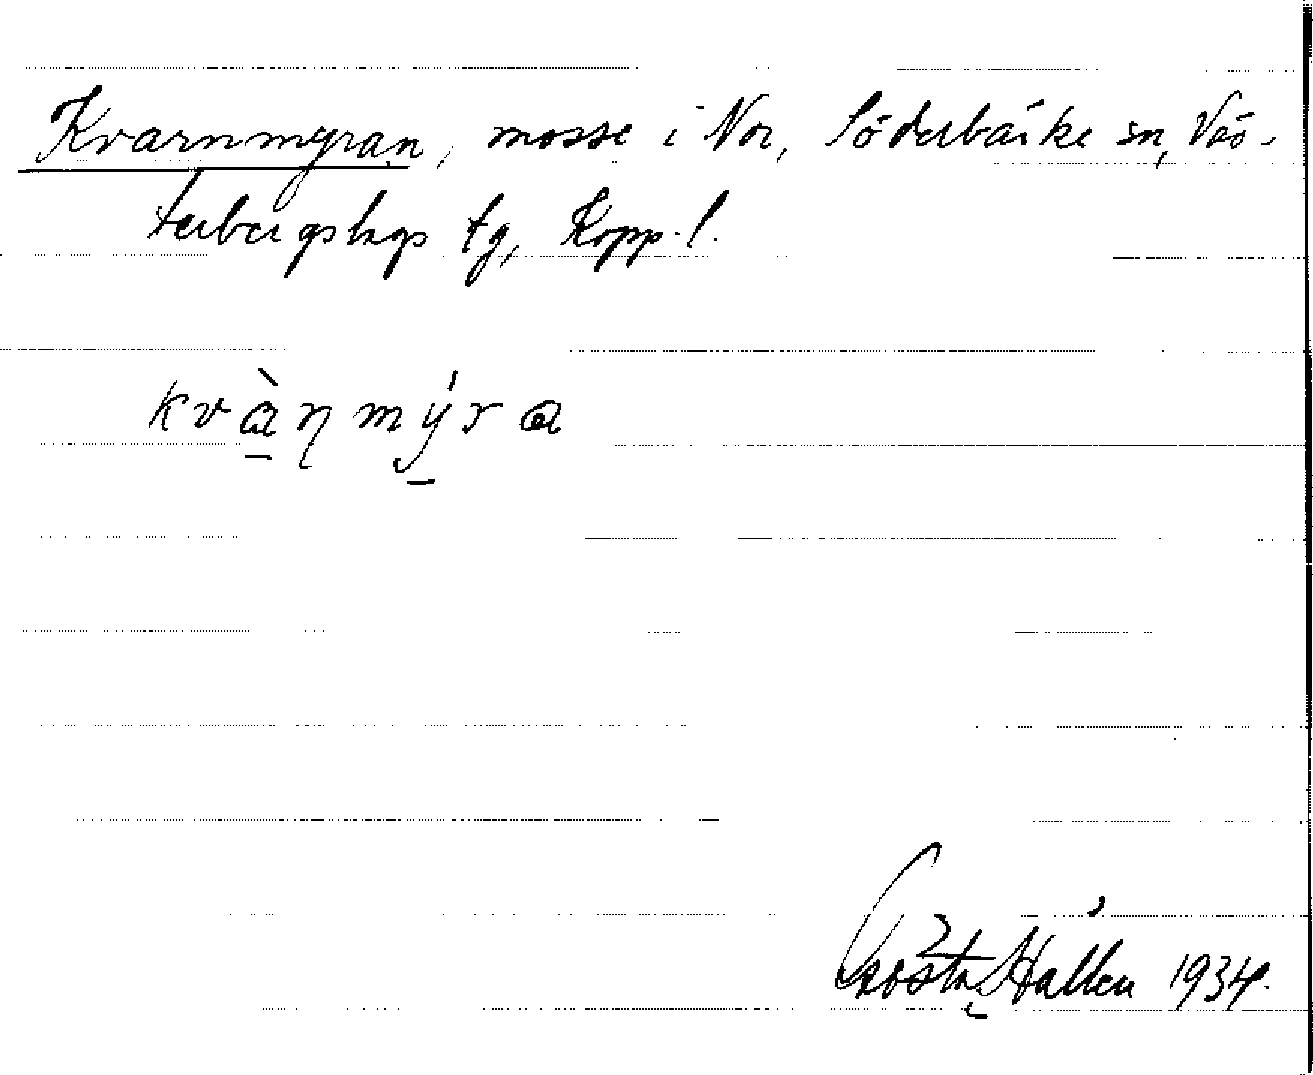 Kvarnmyran, mosse i Nor, Söderbärke sn, Väs-
terbergslags tg, Kopp. l.
kvà̱ɳmý̱ra
Gösta Hallén 1934.